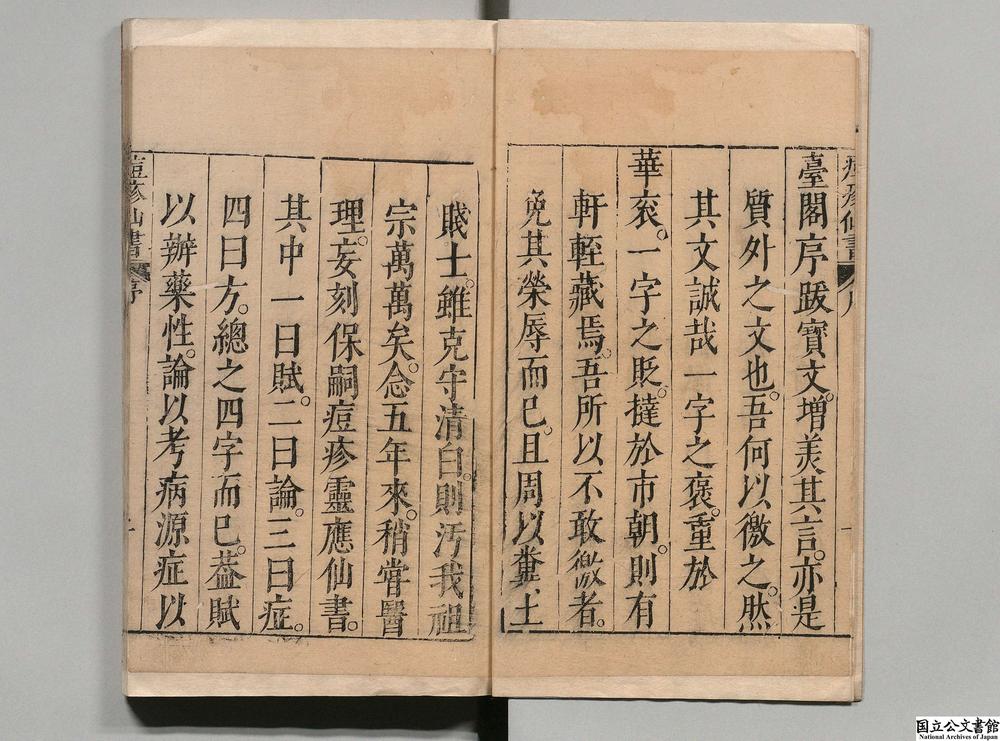 痘疹仙書 序
臺閣序跋寶文。增美其言。亦是
質外之文也。吾何以徼之。然
其文誠哉一字之褒。重於
華衮。一字之貶。撻於市朝。則有
軒輊藏焉。吾所以不敢徼者。
免其榮辱而已。且周以糞土
賤士。雖克守清白。則汚我祖
宗萬萬矣。念五年來。稍嘗醫
理。妄刻保嗣痘疹靈應仙書。
其中一曰賦。二曰論。三曰症。
四曰方。總之四字而已。葢賦
以辨藥性。論以考病源症以
痘疹仙書 序
国立公文書館
National Archives of Japan